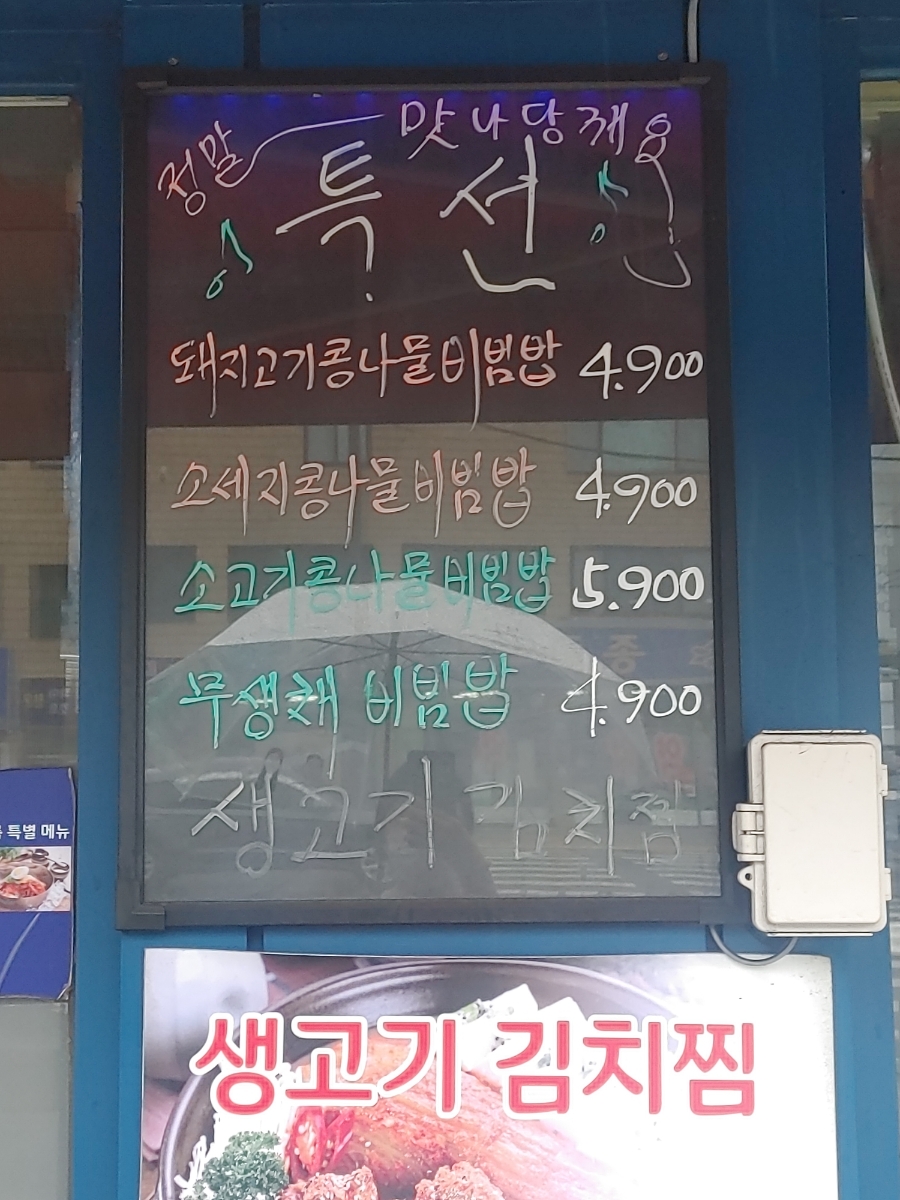 정말 맛나당께요
특선
돼지고기콩나물비빔밥 4.900
소세지콩나물비빔밥 4.900
소고기콩나물비빔밥 5.900
무생채 비빔밥 4.900
생고기 김치찜
특별 메뉴
생고기 김치찜